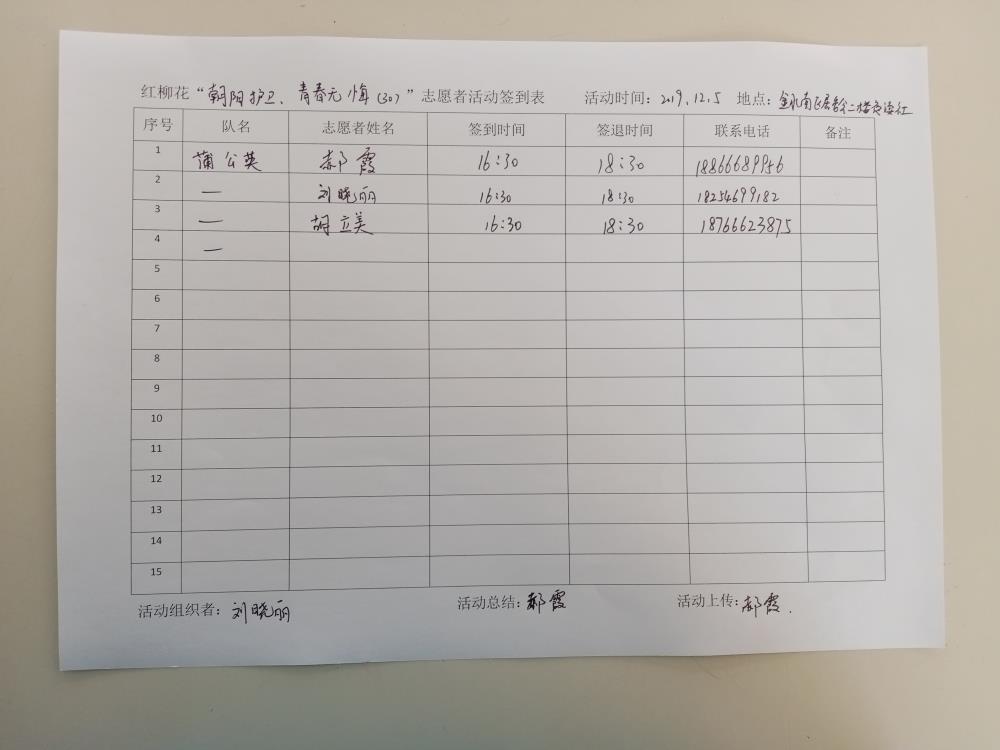 红柳花“朝阳护卫、青春无悔(30)”志愿者活动签到表 活动时间：2019.12.5 地点：
序号 队名 志愿者姓名 签到时间 签退时间 联系电话 备注
1 蒲公英 郝霞 16:30 18:30 18866689956
2 — 刘晓丽 16:30 18:30 18254699182
3 — 胡立美 16:30 18:30 18766623875
4 —
5
6
7
8
9
10
11
12
13
14
15
活动组织者：刘晓丽 活动总结：郝霞 活动上传：郝霞.